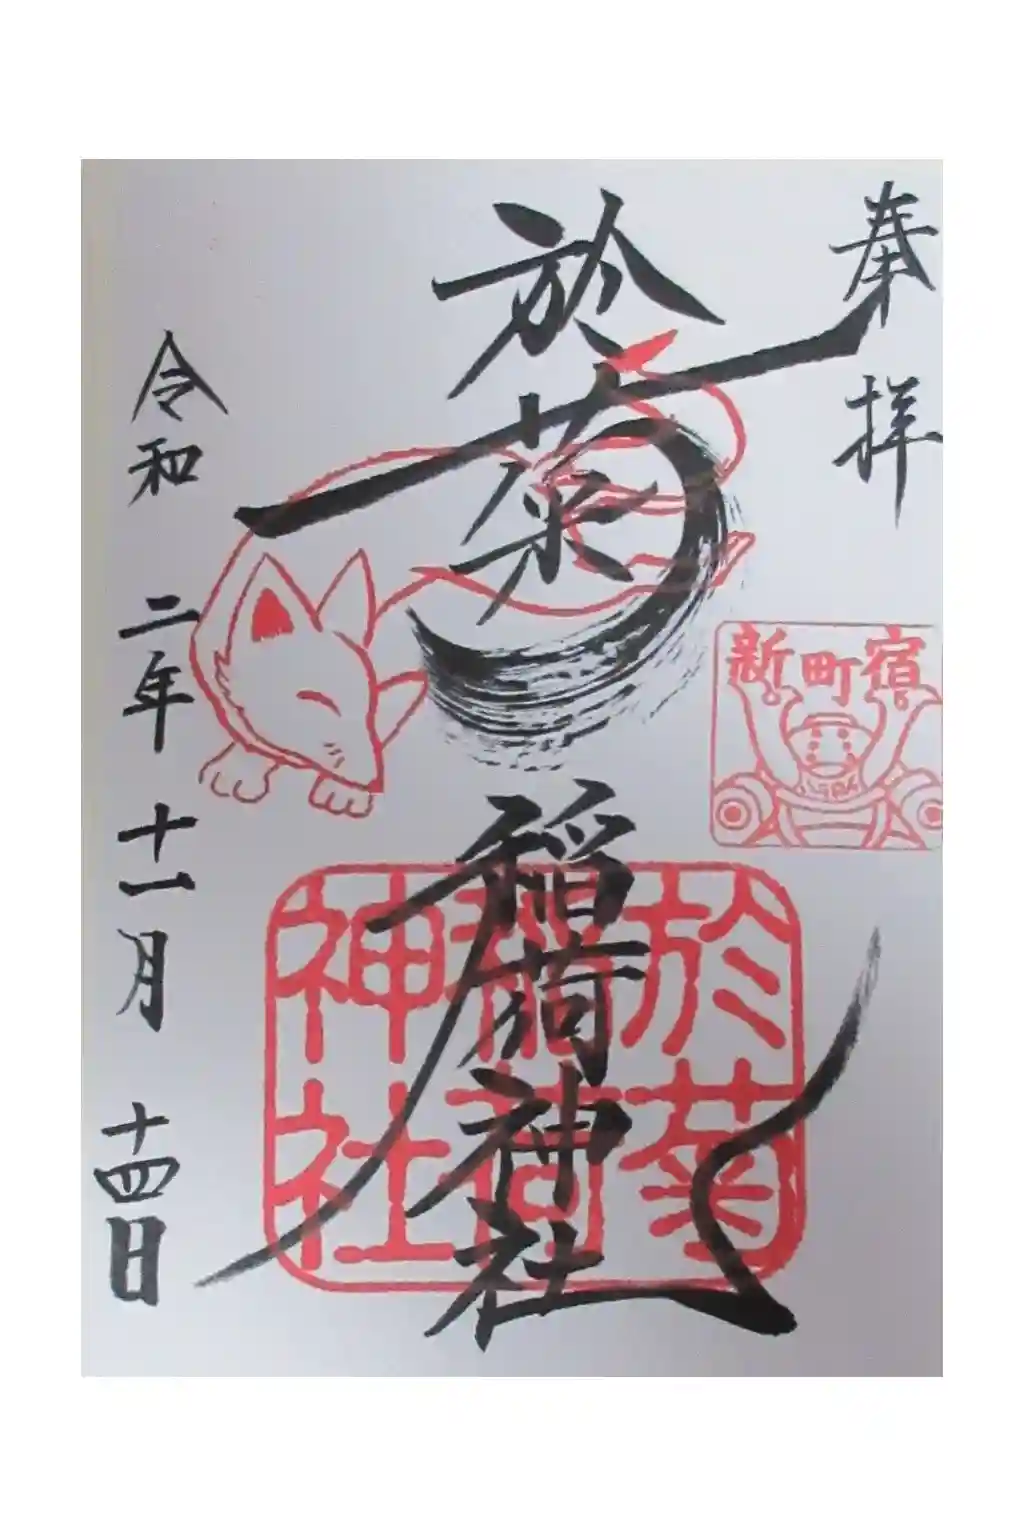 奉拝
新町宿
於菊稲荷神社
於菊
稲荷
神社
令和二年十一月十四日